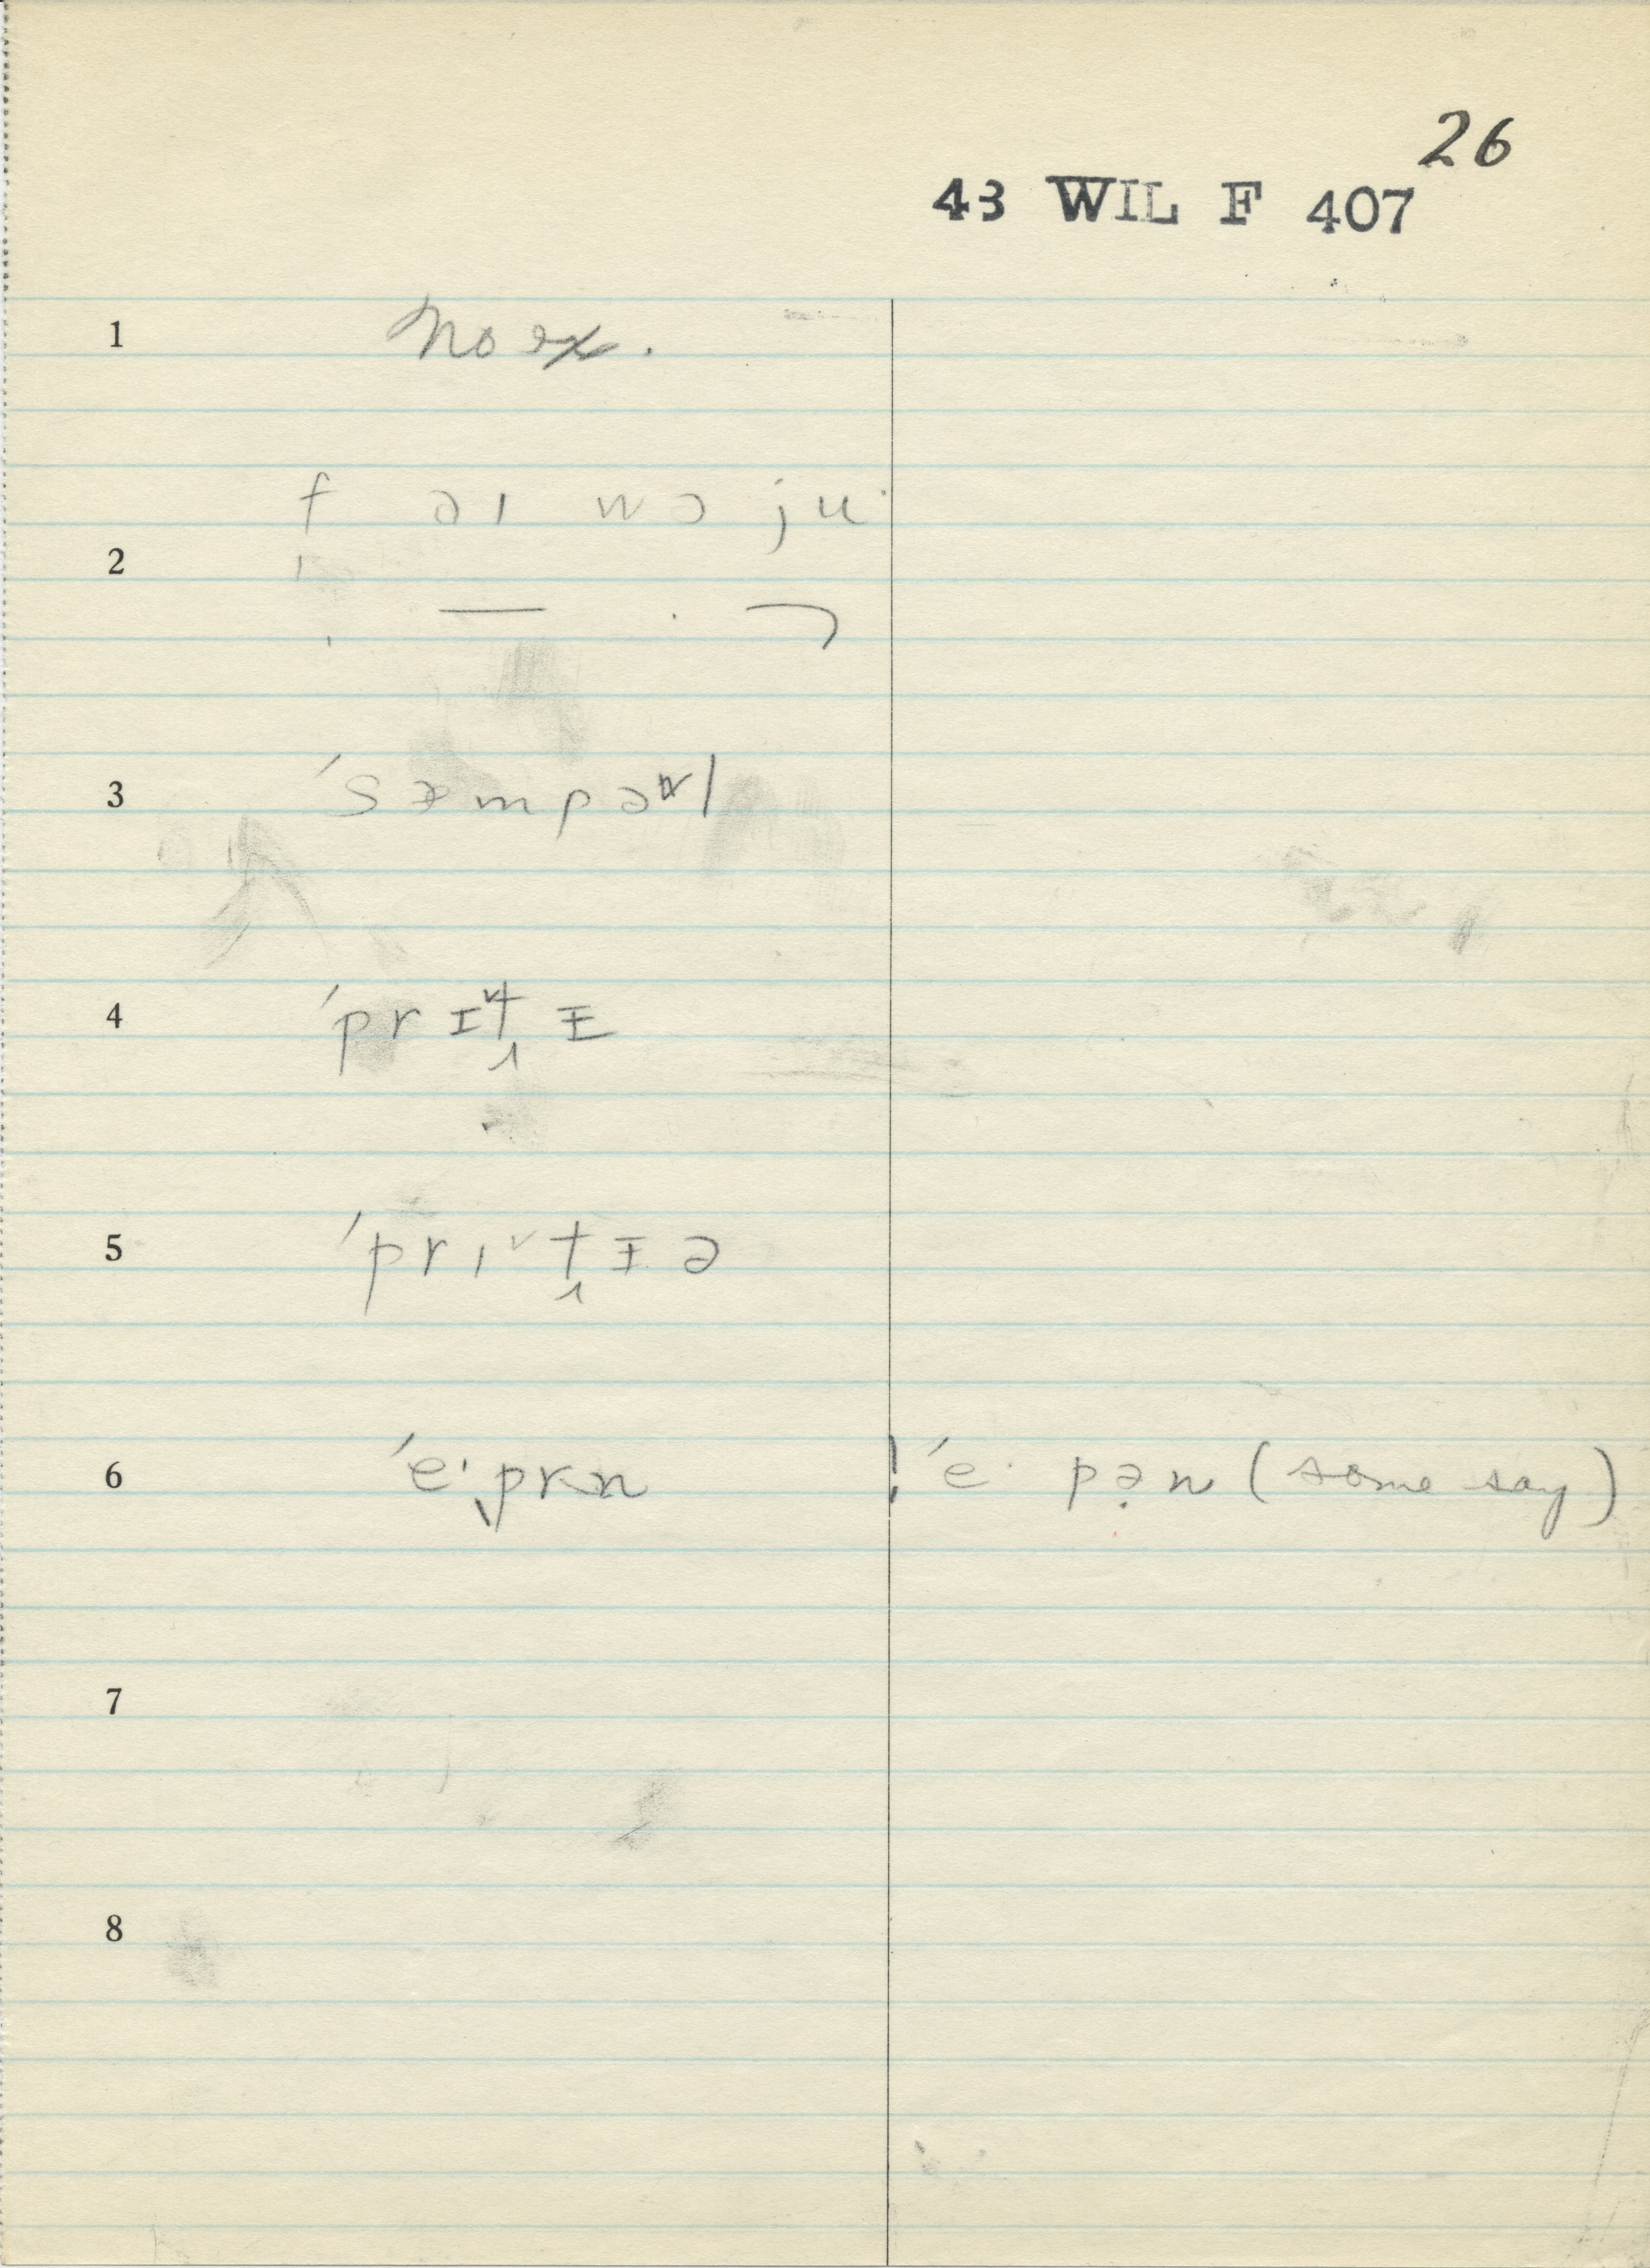 26
43 WIL F 407
1 no ex.
f ə ɪ w ɔ j u·
2
3 ˈsæmpəl
4 ˈprɪt̬ɪ
5 ˈprɪt̬ɪə
6 ˈe·prən ˈe· pə̣n (some say)
7
8